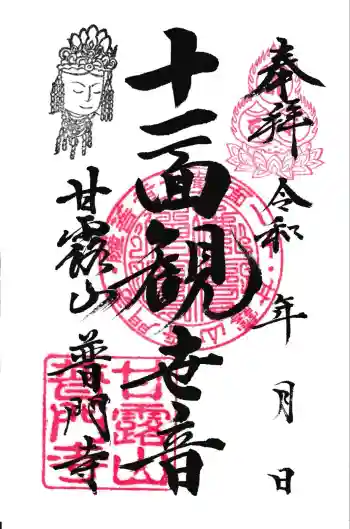 奉拝 令和 年 月 日
十一面観世音
甘露山 普門寺
甘露山
普門寺